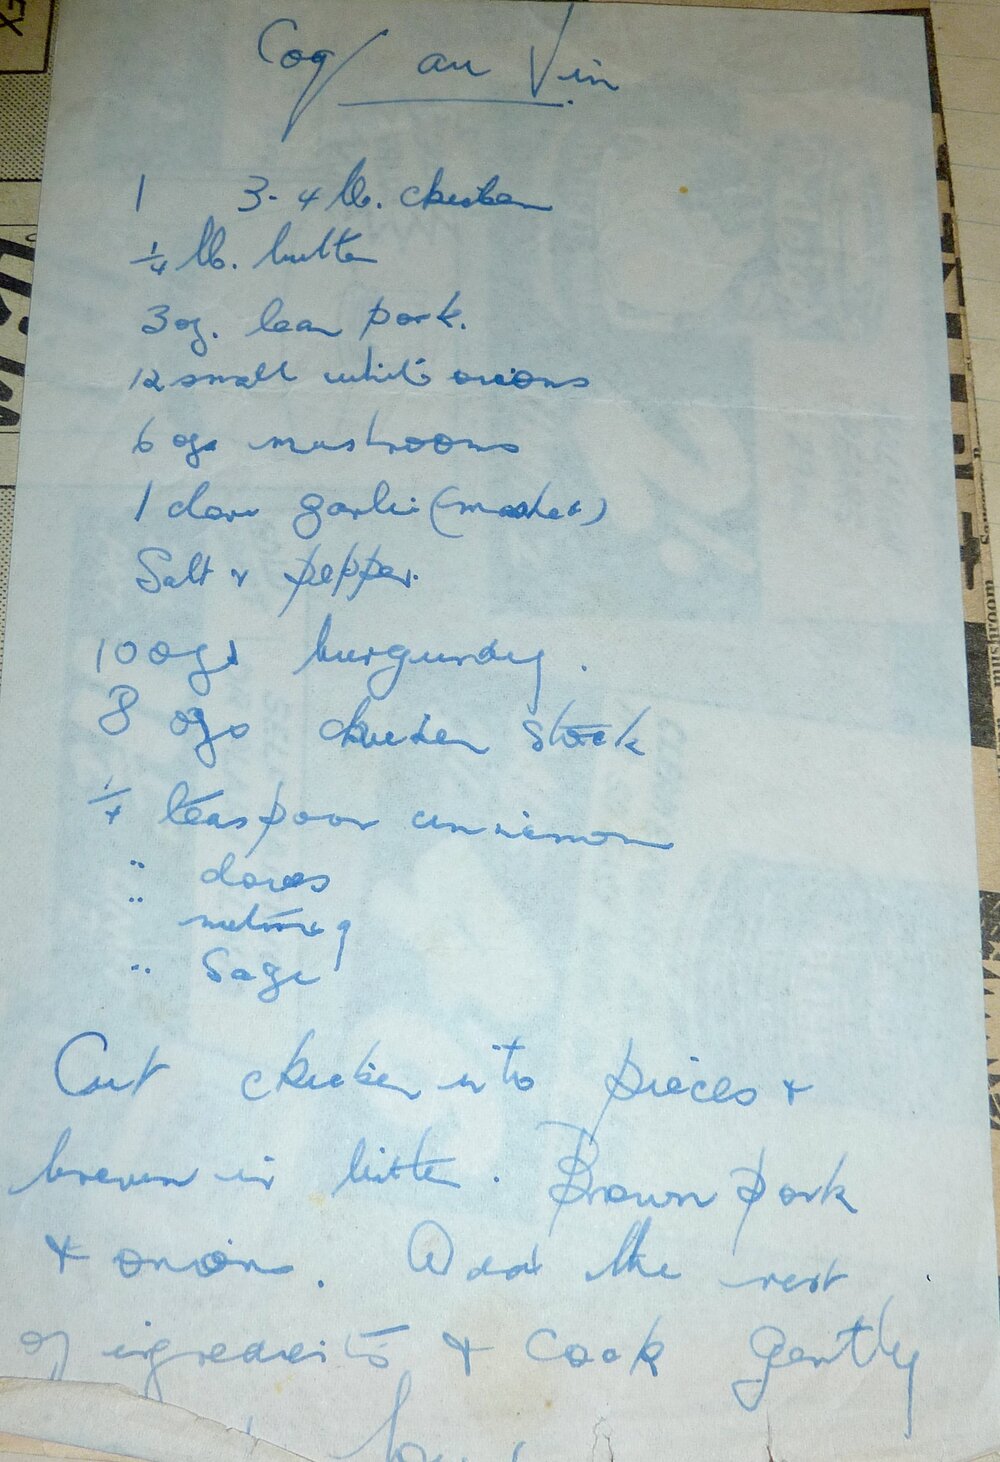 Coq au Vin
1 3-4 lb. chicken
1/4 lb. butter
3 oz. lean pork.
12 small white onions
6 ozs mushrooms
1 clove garlic (mashed)
Salt & pepper.
10 ozs burgundy.
8 ozs chicken stock
1/4 teaspoon cinnamon
" cloves
" nutmeg
" Sage
Cut chicken into pieces &
brown in butter. Brown pork
& onions. Add the rest
of ingredients & cook gently
mushroom